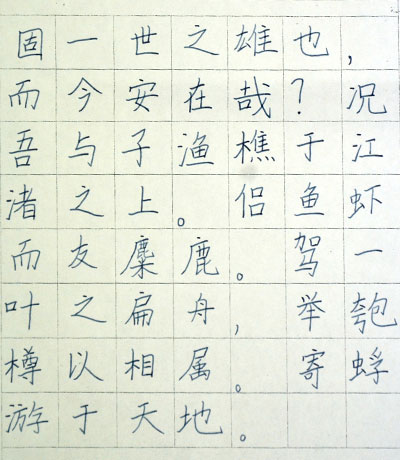 固一世之雄也，
而今安在哉？况
吾与子渔樵于江
渚之上。侣鱼虾
而友麋鹿。驾一
叶之扁舟，举匏
樽以相属。寄蜉
游于天地。